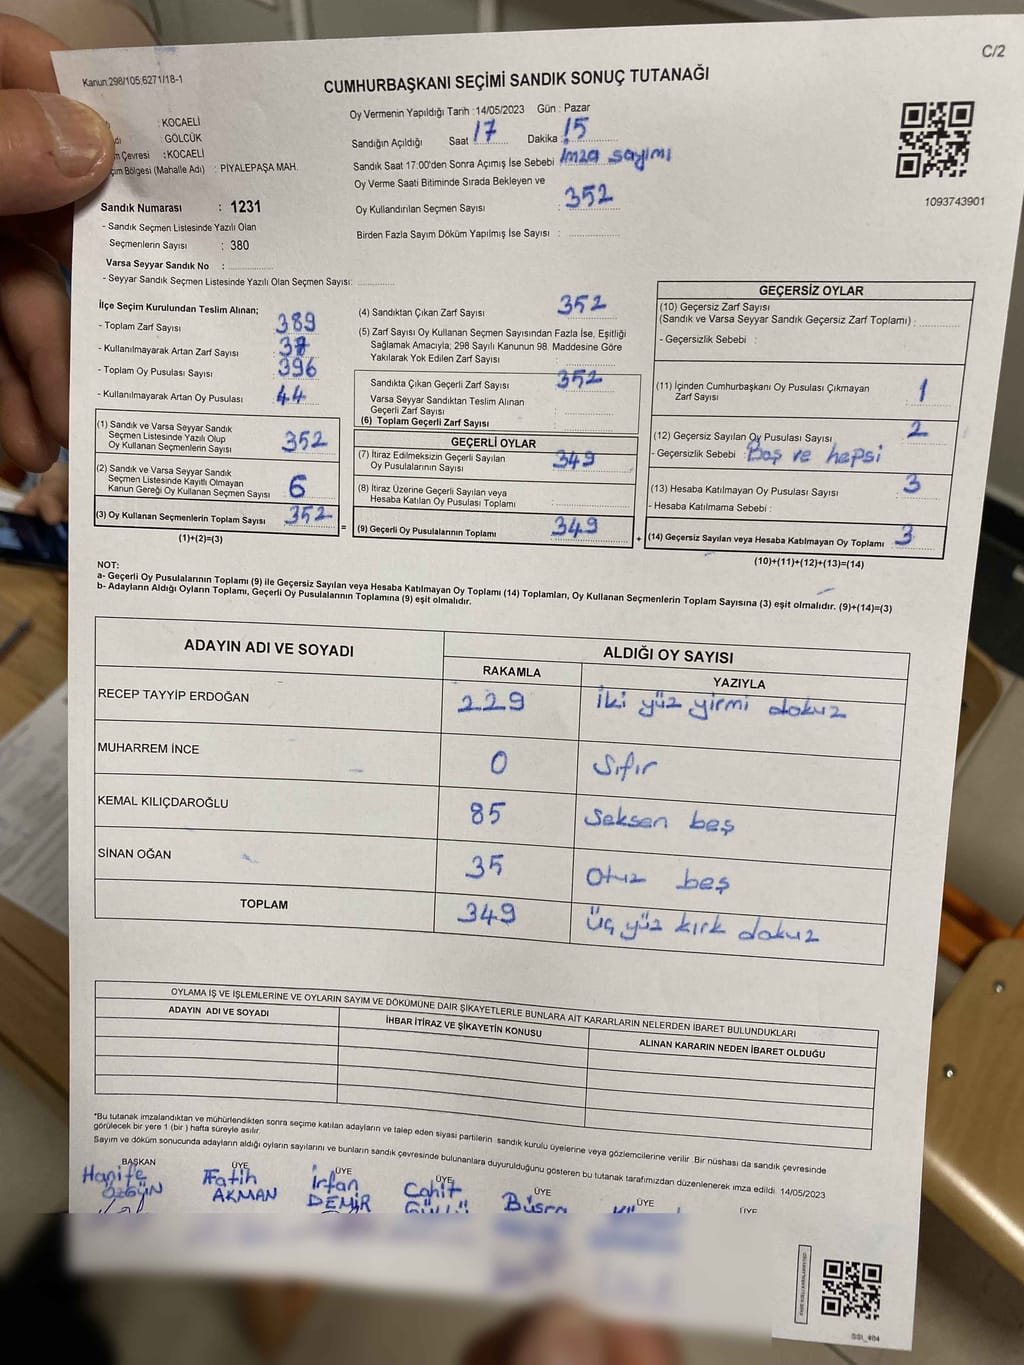 C/2
Kanun 298/105;6271/18-1
CUMHURBAŞKANI SEÇİMİ SANDIK SONUÇ TUTANAĞI
: KOCAELİ
: GÖLCÜK
Çevresi : KOCAELİ
Bölgesi (Mahalle Adı) : PİYALEPAŞA MAH.
Sandık Numarası : 1231
- Sandık Seçmen Listesinde Yazılı Olan
Seçmenlerin Sayısı : 380
Varsa Seyyar Sandık No :
- Seyyar Sandık Seçmen Listesinde Yazılı Olan Seçmen Sayısı:
Oy Vermenin Yapıldığı Tarih : 14/05/2023 Gün : Pazar
Sandığın Açıldığı Saat 17 Dakika 15
Sandık Saat 17:00'den Sonra Açımış İse Sebebi İmza sayımı
Oy Verme Saati Bitiminde Sırada Bekleyen ve
Oy Kullandırılan Seçmen Sayısı : 352
Birden Fazla Sayım Döküm Yapılmış İse Sayısı :
1093743901
İlçe Seçim Kurulundan Teslim Alınan;
- Toplam Zarf Sayısı 389
- Kullanılmayarak Artan Zarf Sayısı
- Toplam Oy Pusulası Sayısı 396
- Kullanılmayarak Artan Oy Pusulası 44
(1) Sandık ve Varsa Seyyar Sandık
Seçmen Listesinde Yazılı Olup
Oy Kullanan Seçmenlerin Sayısı 352
(2) Sandık ve Varsa Seyyar Sandık
Seçmen Listesinde Kayıtlı Olmayan
Kanun Gereği Oy Kullanan Seçmen Sayısı 6
(3) Oy Kullanan Seçmenlerin Toplam Sayısı 352 =
(1)+(2)=(3)
(4) Sandıktan Çıkan Zarf Sayısı 352
(5) Zarf Sayısı Oy Kullanan Seçmen Sayısından Fazla İse, Eşitliği
Sağlamak Amacıyla; 298 Sayılı Kanunun 98. Maddesine Göre
Yakılarak Yok Edilen Zarf Sayısı :
Sandıkta Çıkan Geçerli Zarf Sayısı 352
Varsa Seyyar Sandıktan Teslim Alınan
Geçerli Zarf Sayısı :
(6) Toplam Geçerli Zarf Sayısı
GEÇERLİ OYLAR
(7) İtiraz Edilmeksizin Geçerli Sayılan
Oy Pusulalarının Sayısı 349
(8) İtiraz Üzerine Geçerli Sayılan veya
Hesaba Katılan Oy Pusulası Toplamı :
(9) Geçerli Oy Pusulalarının Toplamı 349 +
GEÇERSİZ OYLAR
(10) Geçersiz Zarf Sayısı
(Sandık ve Varsa Seyyar Sandık Geçersiz Zarf Toplamı) :
- Geçersizlik Sebebi :
(11) İçinden Cumhurbaşkanı Oy Pusulası Çıkmayan
Zarf Sayısı 1
(12) Geçersiz Sayılan Oy Pusulası Sayısı 2
- Geçersizlik Sebebi Boş ve hepsi
(13) Hesaba Katılmayan Oy Pusulası Sayısı 3
- Hesaba Katılmama Sebebi :
(14) Geçersiz Sayılan veya Hesaba Katılmayan Oy Toplamı 3
(10)+(11)+(12)+(13)=(14)
NOT:
a- Geçerli Oy Pusulalarının Toplamı (9) ile Geçersiz Sayılan veya Hesaba Katılmayan Oy Toplamı (14) Toplamları, Oy Kullanan Seçmenlerin Toplam Sayısına (3) eşit olmalıdır. (9)+(14)=(3)
b- Adayların Aldığı Oyların Toplamı, Geçerli Oy Pusulalarının Toplamına (9) eşit olmalıdır.
ADAYIN ADI VE SOYADI ALDIĞI OY SAYISI
RAKAMLA YAZIYLA
RECEP TAYYİP ERDOĞAN 229 iki yüz yirmi dokuz
MUHARREM İNCE 0 Sıfır
KEMAL KILIÇDAROĞLU 85 Seksen beş
SİNAN OĞAN 35 Otuz beş
TOPLAM 349 Üç yüz kırk dokuz
OYLAMA İŞ VE İŞLEMLERİNE VE OYLARIN SAYIM VE DÖKÜMÜNE DAİR ŞİKAYETLERLE BUNLARA AİT KARARLARIN NELERDEN İBARET BULUNDUKLARI
ADAYIN ADI VE SOYADI İHBAR İTİRAZ VE ŞİKAYETİN KONUSU ALINAN KARARIN NEDEN İBARET OLDUĞU
*Bu tutanak imzalandıktan ve mühürlendikten sonra seçime katılan adayların ve talep eden siyasi partilerin sandık kurulu üyelerine veya gözlemcilerine verilir. Bir nüshası da sandık çevresinde
görülecek bir yere 1 (bir) hafta süreyle asılır.
Sayım ve döküm sonucunda adayların aldığı oyların sayılarını ve bunların sandık çevresinde bulunanlara duyurulduğunu gösteren bu tutanak tarafımızdan düzenlenerek imza edildi. 14/05/2023
BAŞKAN ÜYE ÜYE ÜYE ÜYE ÜYE ÜYE
Hanife Fatih İrfan Cahit Büşra
ÖZGÜN AKMAN DEMİR
SSI_404